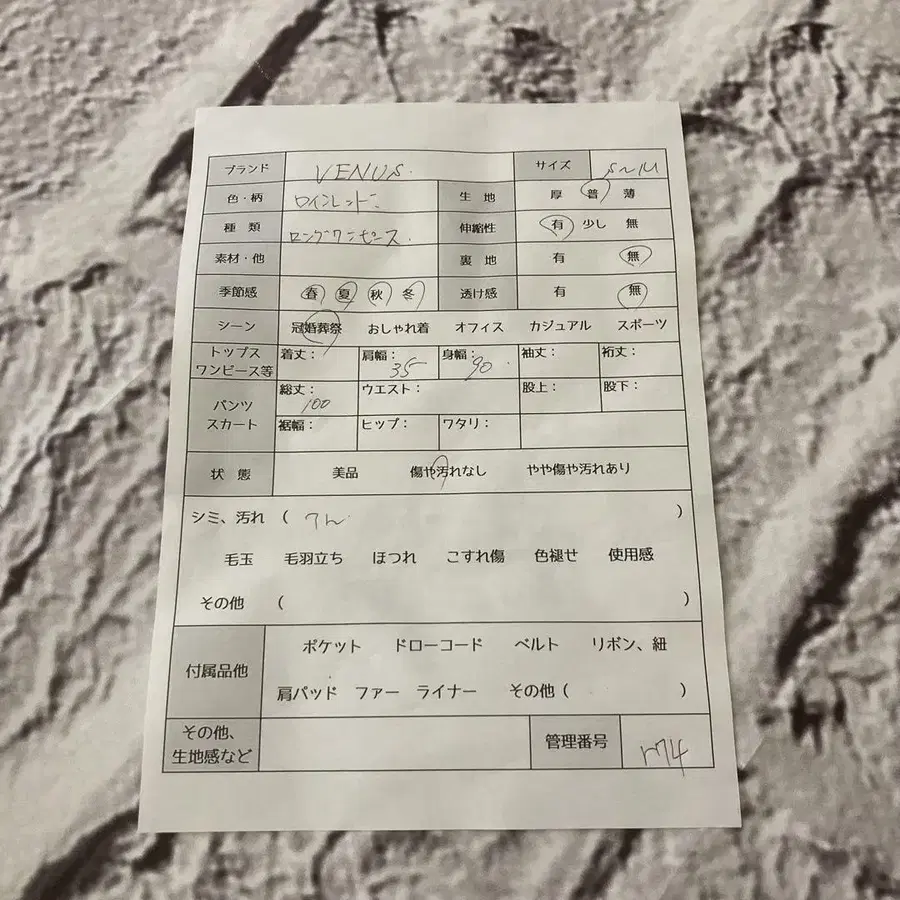 ブランド VENUS. サイズ S~M
色・柄 ワインレッド 生地 厚 普 薄
種類 ロングワンピース. 伸縮性 有 少し 無
素材・他 裏地 有 無
季節感 春 夏 秋 冬 透け感 有 無
シーン 冠婚葬祭 おしゃれ着 オフィス カジュアル スポーツ
トップス ワンピース等 着丈: 肩幅: 35 身幅: 90 袖丈: 裄丈:
パンツ スカート 総丈: 100 ウエスト: 股上: 股下:
裾幅: ヒップ: ワタリ:
状態 美品 傷や汚れなし やや傷や汚れあり
シミ、汚れ ( )
毛玉 毛羽立ち ほつれ こすれ傷 色褪せ 使用感
その他 ( )
付属品他 ポケット ドローコード ベルト リボン、紐
肩パッド ファー ライナー その他 ( )
その他、生地感など 管理番号 r74